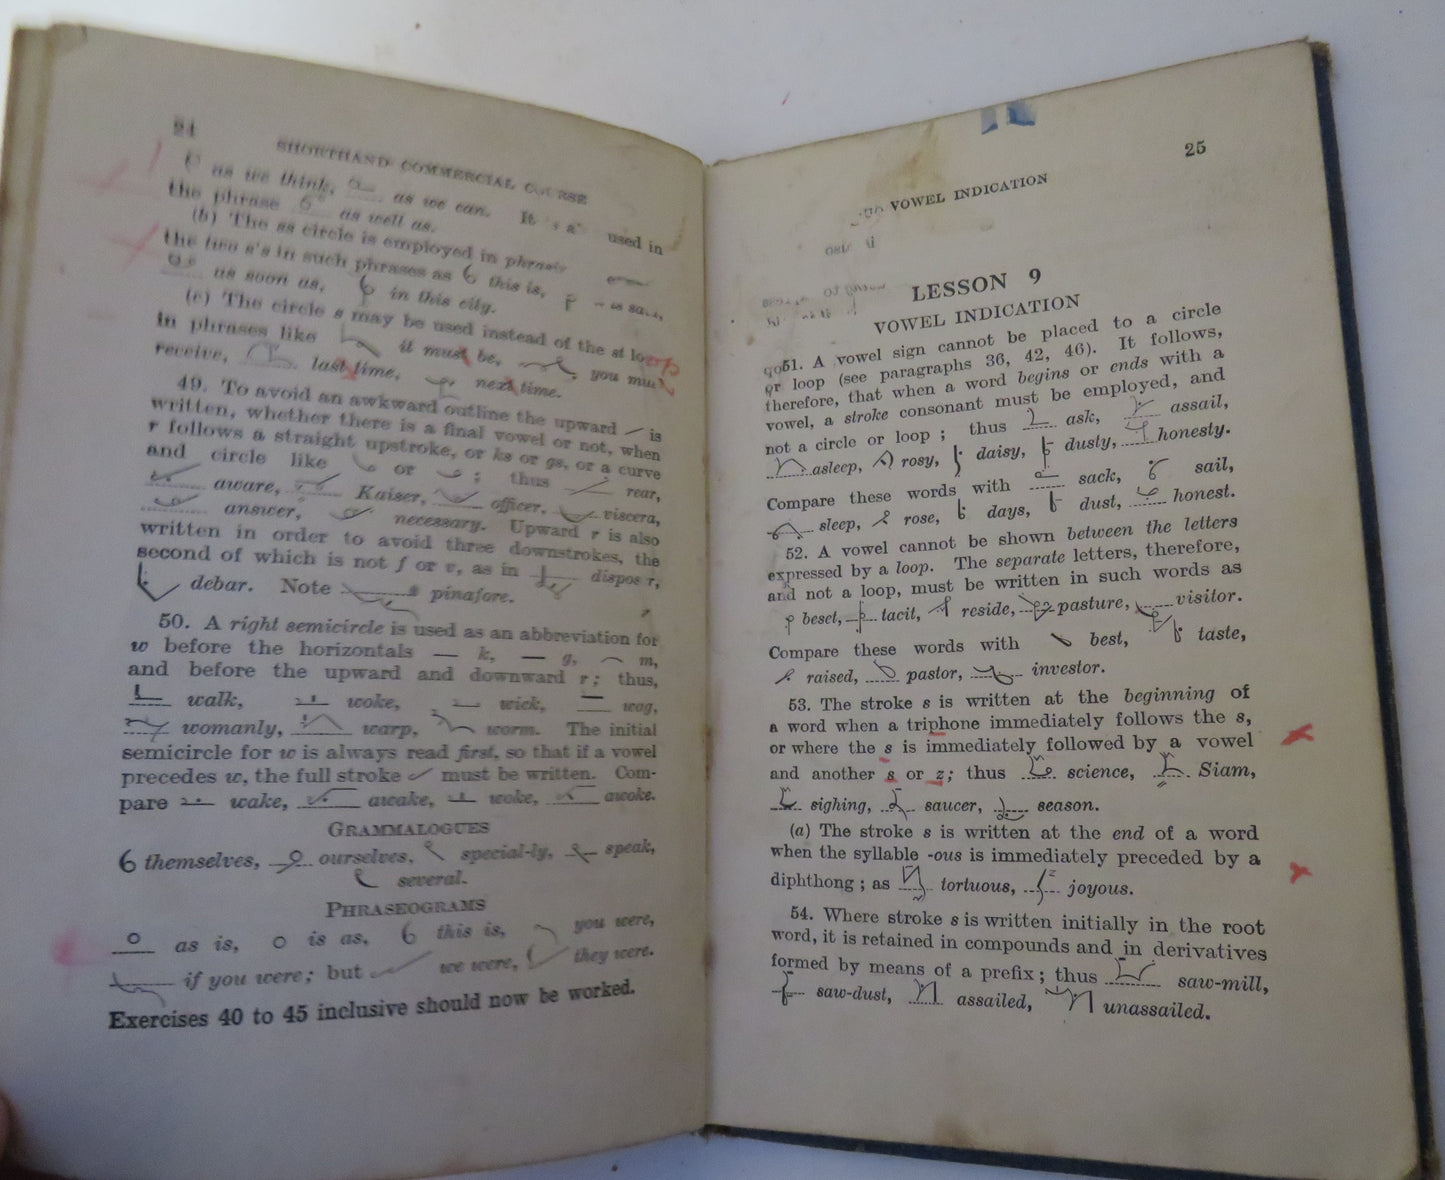 24
SHORTHAND COMMERCIAL COURSE
as we think, as we can. It used in
the phrase as well as.
(b) The ss circle is employed in
the two s's in such phrases as this is,
as soon as, in this city.
(c) The circle s may be used instead of the st loop
in phrases like it must be, you must
receive, last time, next time.
49. To avoid an awkward outline the upward is
written, whether there is a final vowel or not, when
r follows a straight upstroke, or ks or gs, or a curve
and circle like or ; thus rear,
aware, Kaiser, officer, viscera,
answer, necessary. Upward r is also
written in order to avoid three downstrokes, the
second of which is not f or v, as in
debar. Note pinafore.
50. A right semicircle is used as an abbreviation for
w before the horizontals k, g, m,
and before the upward and downward r; thus,
walk, woke, wick, wag,
womanly, warp, worm. The initial
semicircle for w is always read first, so that if a vowel
precedes w, the full stroke must be written. Com-
pare wake, awake, woke, awoke.
GRAMMALOGUES
themselves, ourselves, special-ly, speak,
several.
PHRASEOGRAMS
as is, is as, this is, you were,
if you were; but we were, they were.
Exercises 40 to 45 inclusive should now be worked.
VOWEL INDICATION
25
LESSON 9
VOWEL INDICATION
51. A vowel sign cannot be placed to a circle
or loop (see paragraphs 36, 42, 46). It follows,
therefore, that when a word begins or ends with a
vowel, a stroke consonant must be employed, and
not a circle or loop; thus ask, assail,
asleep, rosy, daisy, dusty, honesty.
Compare these words with sack, sail,
sleep, rose, days, dust, honest.
52. A vowel cannot be shown between the letters
expressed by a loop. The separate letters, therefore,
and not a loop, must be written in such words as
beset, tacit, reside, pasture, visitor.
Compare these words with best, taste,
raised, pastor, investor.
53. The stroke s is written at the beginning of
a word when a triphone immediately follows the s,
or where the s is immediately followed by a vowel
and another s or z; thus science, Siam,
sighing, saucer, season.
(a) The stroke s is written at the end of a word
when the syllable -ous is immediately preceded by a
diphthong; as tortuous, joyous.
54. Where stroke s is written initially in the root
word, it is retained in compounds and in derivatives
formed by means of a prefix; thus saw-mill,
saw-dust, assailed, unassailed.